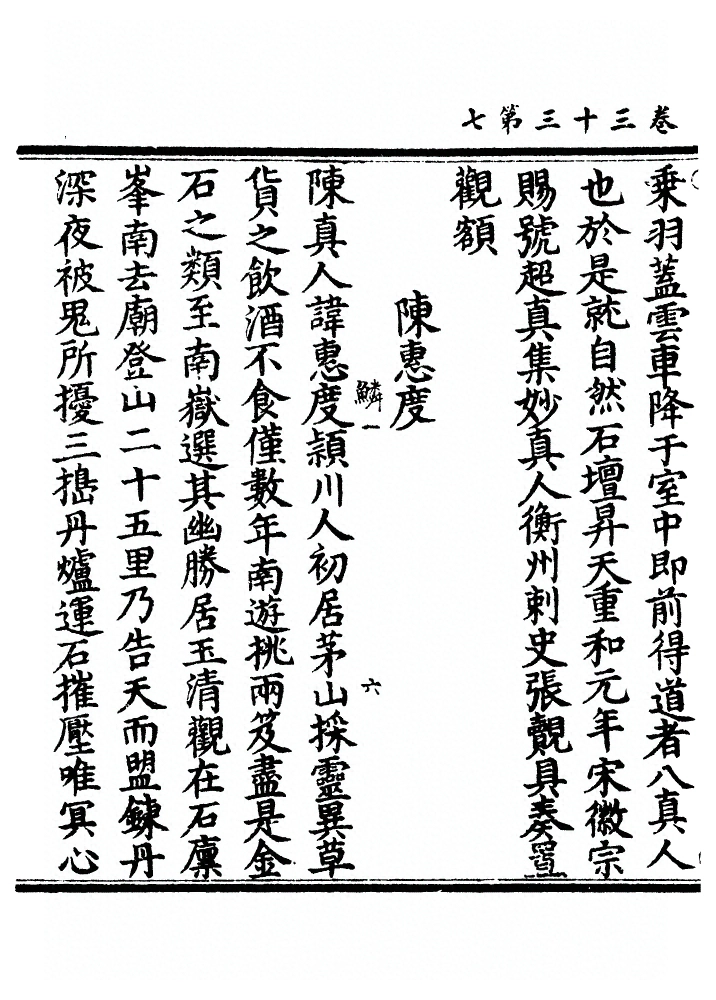 卷三十三第七
乘羽蓋雲車降于室中即前得道者八真人
也於是就自然石壇昇天重和元年宋徽宗
賜號超真集妙真人衡州刺史張覿具奏置
觀額
陳惠度
鱗一
六
陳真人諱惠度潁川人初居茅山採靈異草
貨之飲酒不食僅數年南遊挑兩笈盡是金
石之類至南嶽選其幽勝居玉清觀在石廩
峯南去廟登山二十五里乃告天而盟鍊丹
深夜被鬼所擾三搗丹爐運石摧壓唯冥心